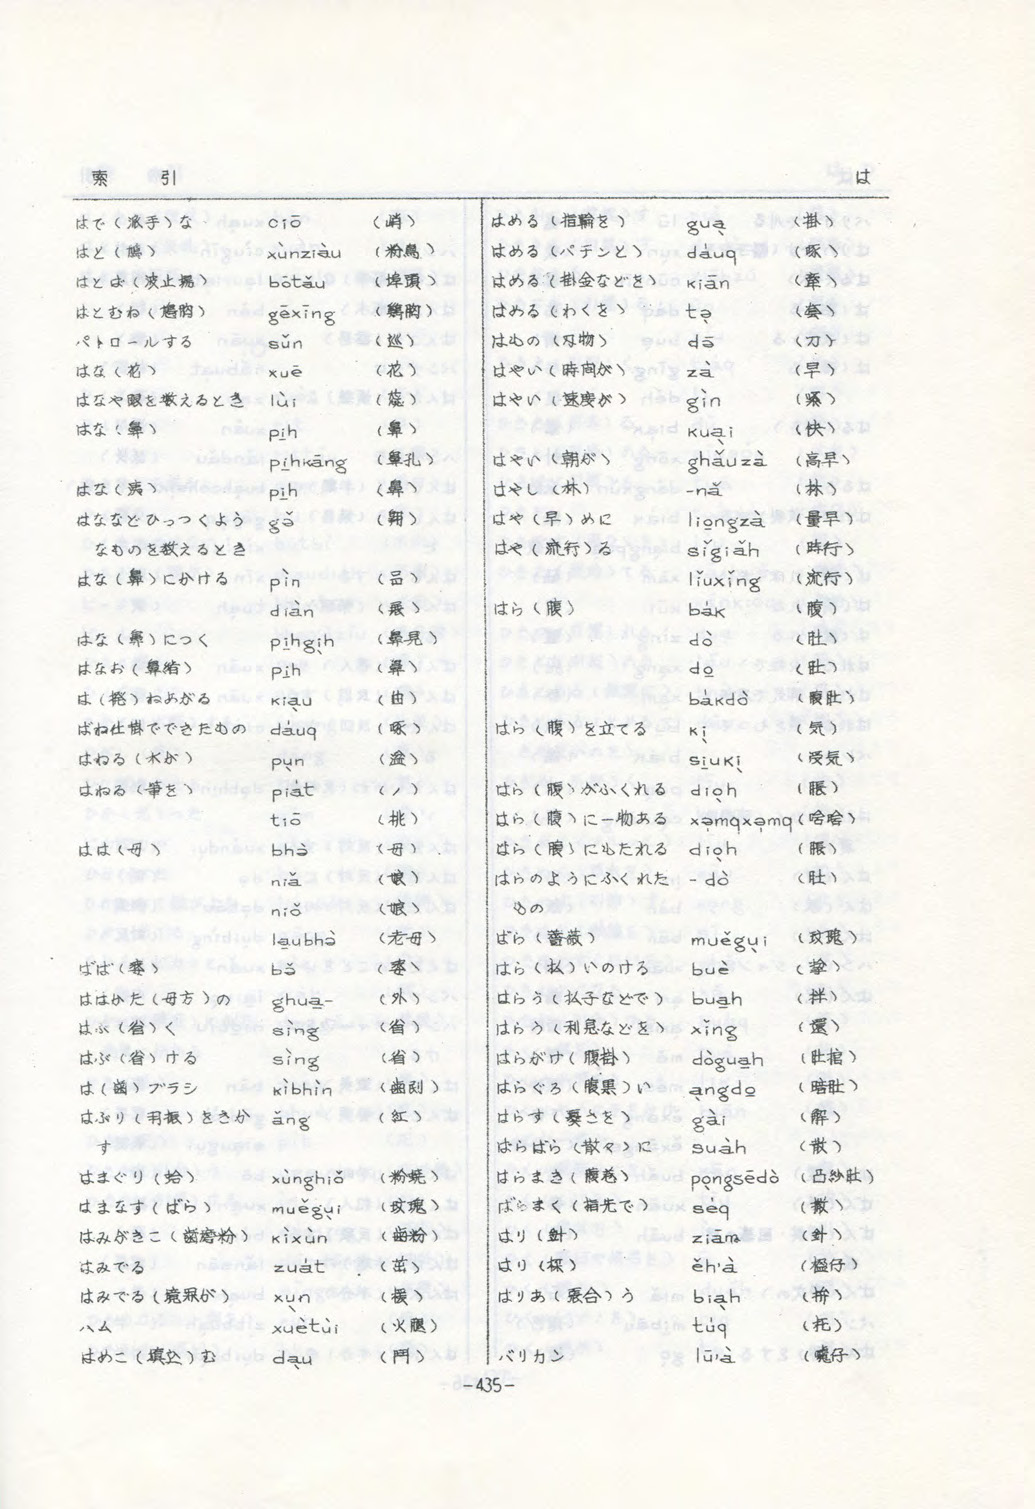 索 引 は
はで(派手)な ciō (峭)
はと(鳩) xunziàu (粉鳥)
はとば(波止場) bōtáu (埠頭)
はとむね(鳩胸) gēxīng (鶏胸)
パトロールする sǔn (巡)
はな(花) xuē (花)
はなや眼を教えるとき lùi (蕊)
はな(鼻) pi̱h (鼻)
pi̱hkāng (鼻孔)
はな(洟) pi̱h (鼻)
はななどひっつくよう gǎ
なものを教えるとき
はな(鼻)にかける pìn
diàn (展)
はな(鼻)につく pi̱hgiṇh (鼻見)
はなお(鼻緒) pi̱h (鼻)
は(撥)ねあがる
ばね仕掛でできたもの dáuq (啄)
はねる(水が) pụn (湓)
はねる(筆を) piát (ノ)
tiō (挑)
はは(母) bhə̀ (母)
niǎ (娘)
niǒ (娘)
la̱ubhə̀ (老母)
ばば(寡)
ははかた(母方)の ghua̱- (外)
はぶ(省)く sìng (省)
はぶ(省)ける sìng (省)
は(歯)ブラシ kìbhìn (歯刡)
はぶり(羽振)をきか ǎng (紅)
す
はまぐり(蛤) xùnghiǒ (粉蟯)
はまなす(ばら) muěgụi (玫瑰)
はみがきこ(歯磨粉) kìxùn (歯粉)
はみでる zuát (茁)
はみでる(境界が) xụn (援)
ハム xuètùi (火腿)
はめこ(填込)む dạu (鬥)
はめる(指輪を) guạ (掛)
はめる(パチンと) dàuq (啄)
はめる(掛金などを) kiān (牽)
はめる(わくを) tə̣ (套)
はもの(刃物) də̄ (刀)
はやい(時間が) zà (早)
はやい(速度が) gìn
kuại (快)
はやい(朝が) ghǎuzà (高早)
はやし(林) -nǎ (林)
はや(早)めに lio̱ngzà (量早)
はや(流行)る sǐgiǎh (時行)
líuxǐng (流行)
はら(腹) bák (腹)
dò (肚)
do̱ (肚)
bákdò (腹肚)
はら(腹)を立てる kị (気)
si̱ukị (受気)
はら(腹)がふくれる diọh (脹)
はら(腹)に一物ある xəmqxəmq (哈哈)
はら(腹)にもたれる diọh (脹)
はらのようにふくれた -dò (肚)
もの
ばら(薔薇) muěgụi (玫瑰)
はら(払)いのける buě
はらう(払子などで) buạh (拌)
はらう(利息などを) xǐng (還)
はらがけ(腹掛) dògua̱h (肚捾)
はらぐろ(腹黒)い ạngdo̱ (暗肚)
はらす(憂さを) gài (解)
はらばら(散々)に suàh (散)
はらまき(腹巻) pọngsēdò (凸紗肚)
ばらまく(袖先で) sèq (撒)
はり(針) ziām (針)
はり(梁) ěh'à (楹仔)
はりあ(張合)う bia̱h (拚)
túq (托)
バリカン lū'à
-435-